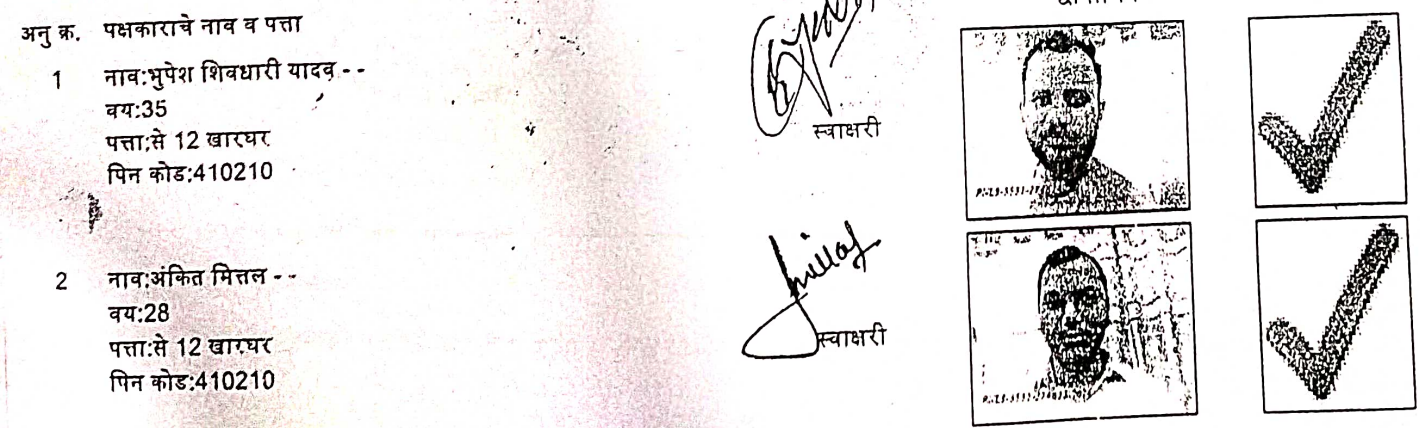 अनु क्र. पक्षकाराचे नाव व पत्ता
1 नाव:भुपेश शिवधारी यादव - -
वय:35
पत्ता:से 12 खारघर
पिन कोड:410210
स्वाक्षरी
2 नाव:अंकित मित्तल - -
वय:28
पत्ता:से 12 खारघर
पिन कोड:410210
स्वाक्षरी